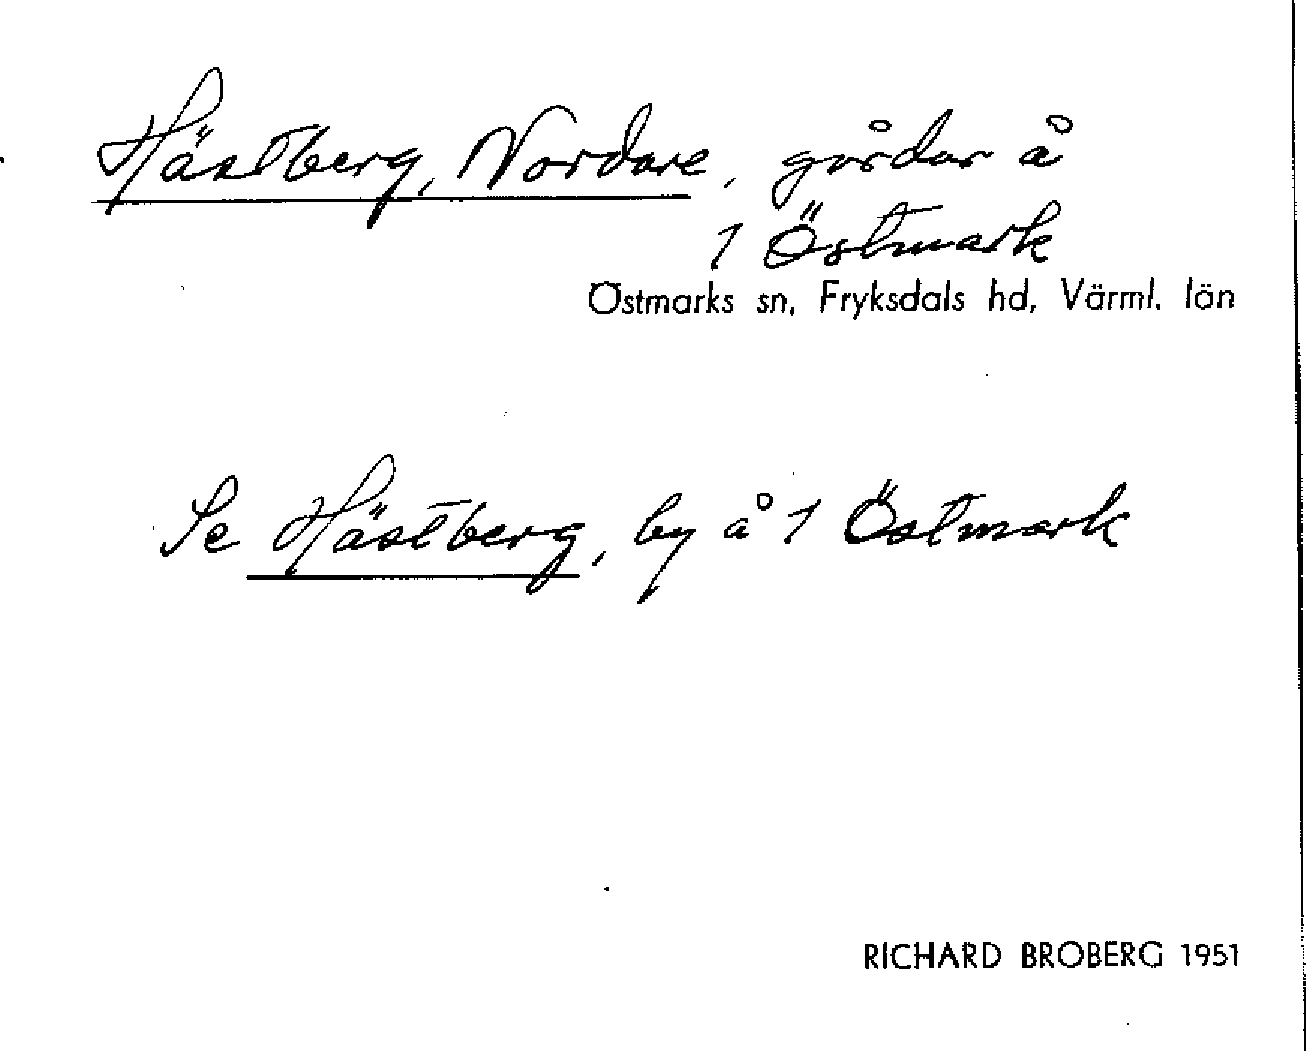 Hästberg, Nordare, gårdar å
1 Östmark
Östmarks sn, Fryksdals hd, Värml. län
Se Hästberg, by å 1 Östmark
RICHARD BROBERG 1951